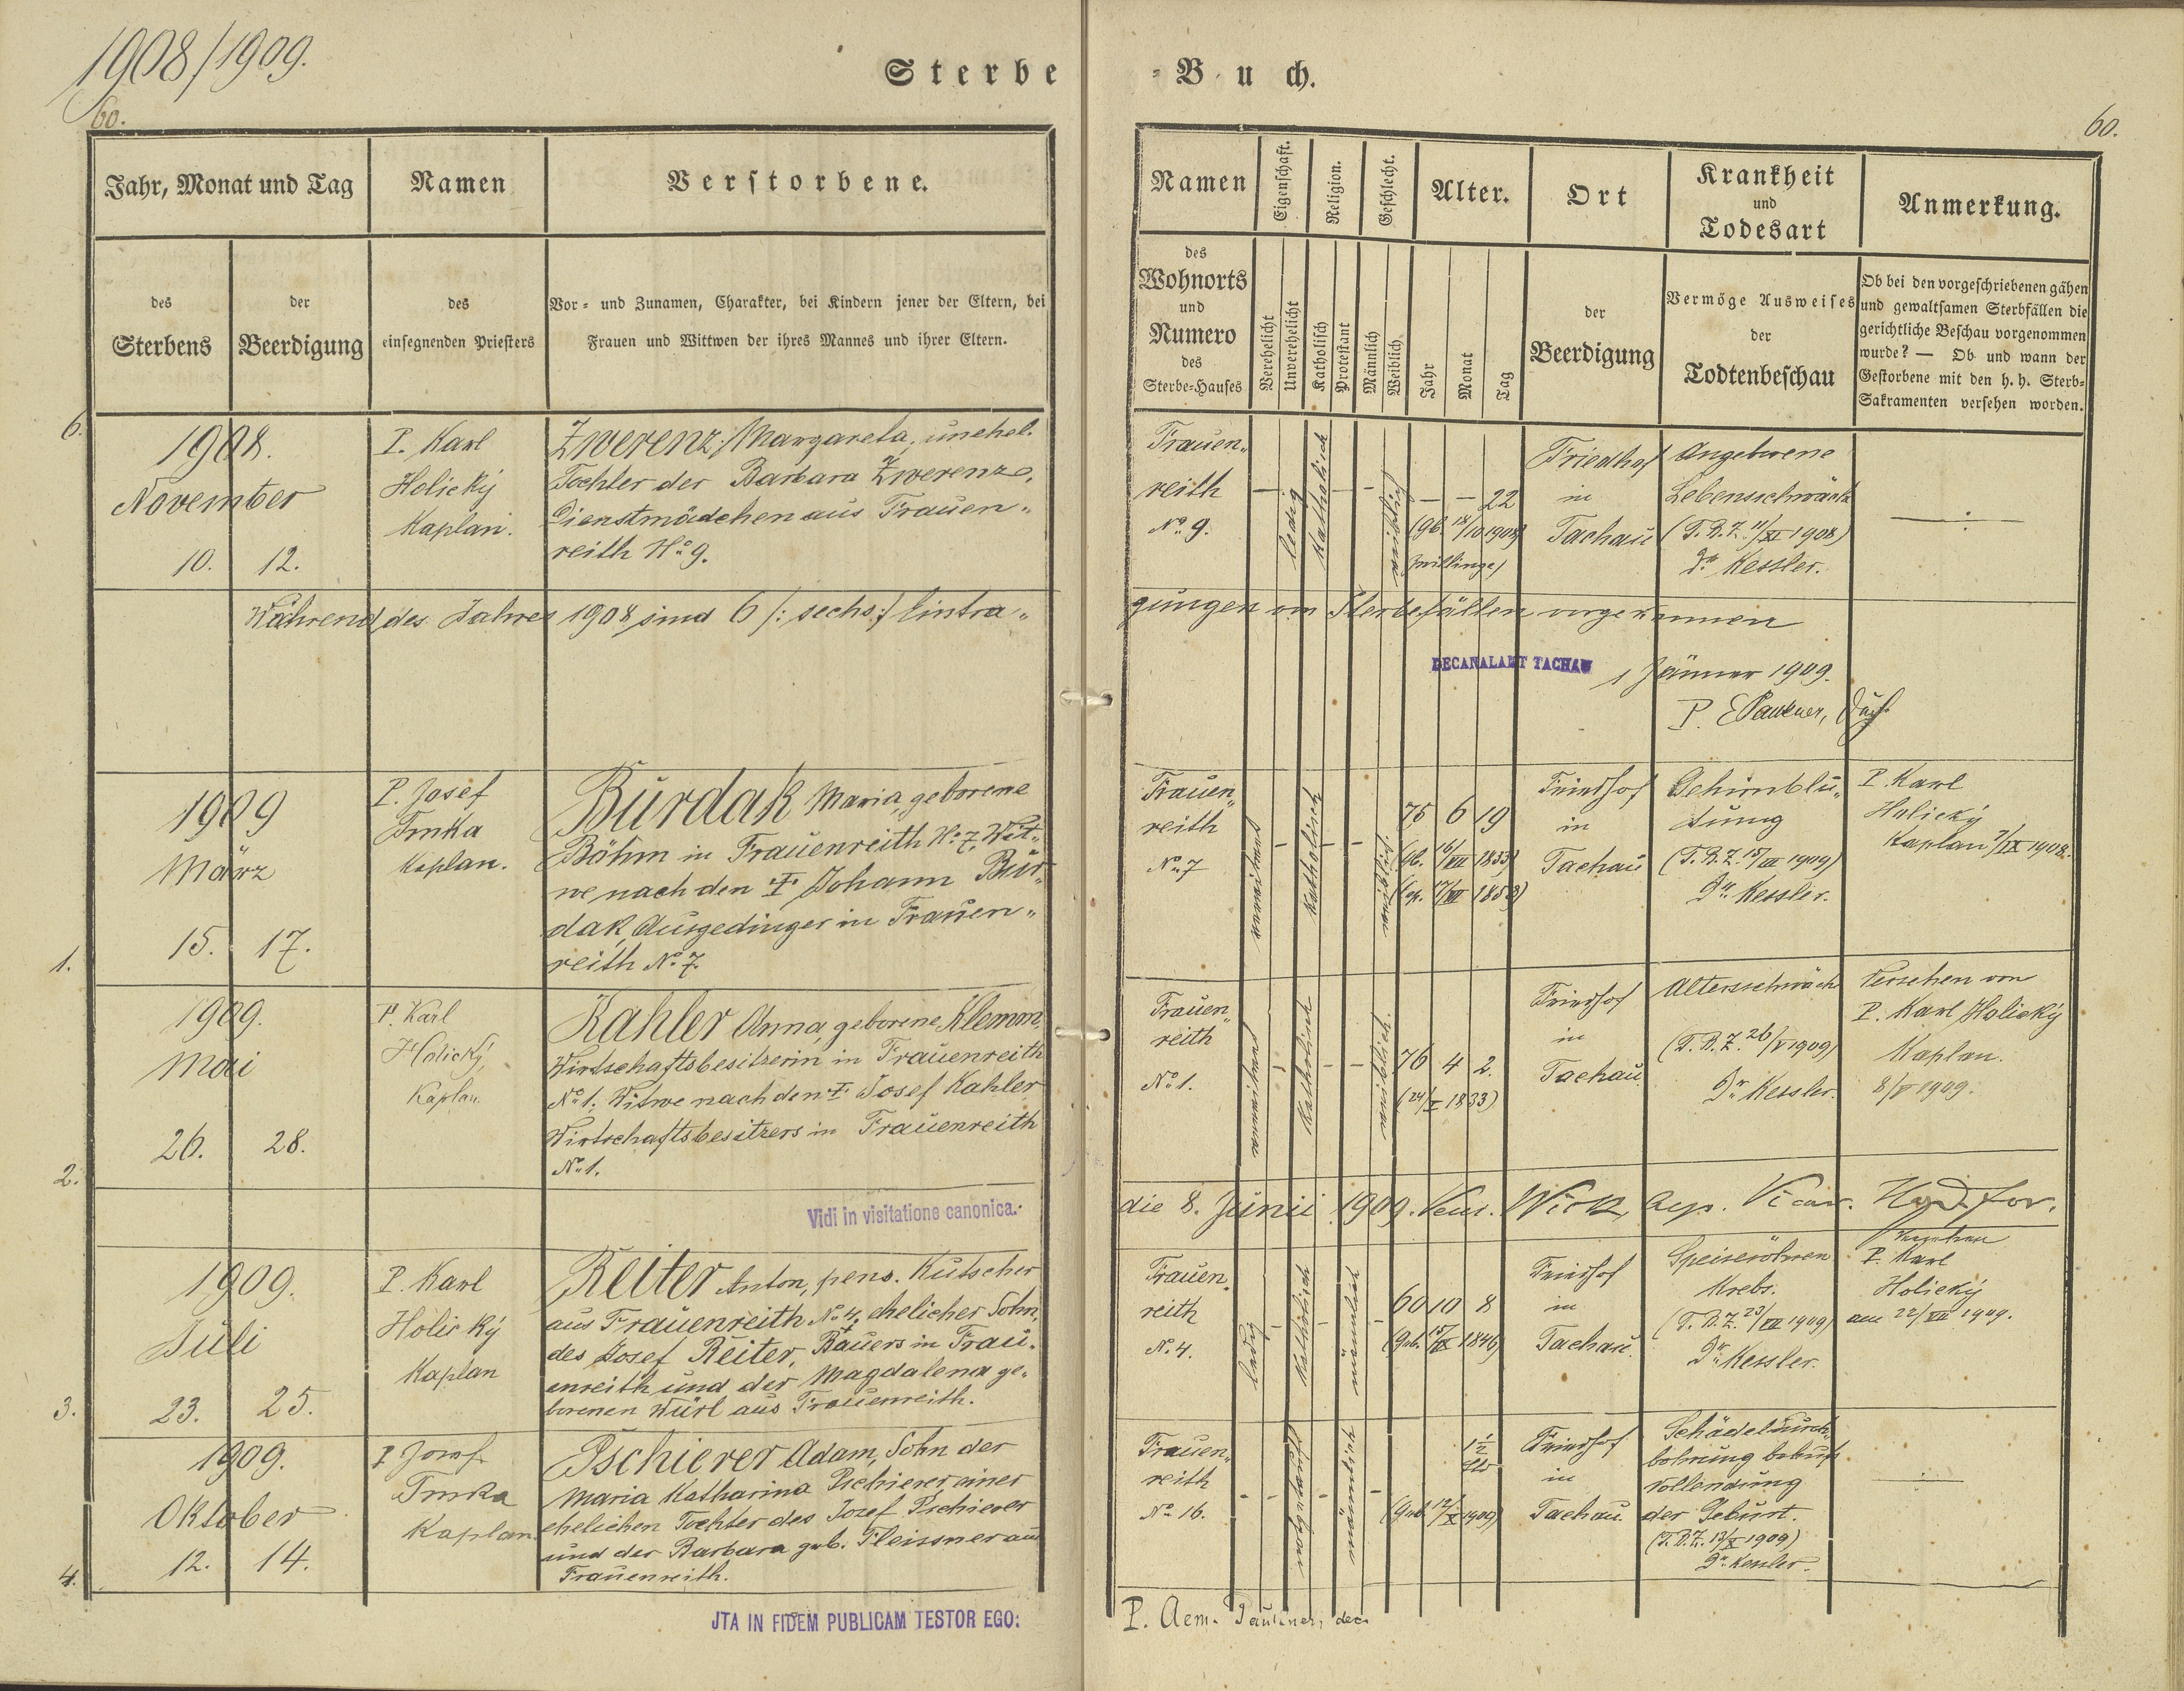 1908/1909.
60.
Sterbe
Jahr, Monat und Tag
Namen
Verstorbene.
des
Sterbens
der
Beerdigung
des
einsegnenden Priesters
Vor- und Zunamen, Charakter, bei Kindern jener der Eltern, bei
Frauen und Wittwen der ihres Mannes und ihrer Eltern.
6.
1908.
November
10. 12.
P. Karl
Holický
Kaplan.
Zwerenz Margareta, unehel.
Tochter der Barbara Zwerenz,
Dienstmädchen aus Frauen„
reith No 9.
Während des Jahres 1908 sind 6 /: sechs :/ Eintra„
1909
März
15. 17.
1.
P. Josef
Trnka
Kaplan.
Burdak Maria, geborene
Böhm in Frauenreith No 7, Wit„
we nach den † Johann Bur„
dak, Ausgedinger in Frauen„
reith No 7.
1909.
Mai
26. 28.
2.
P. Karl
Holický,
Kaplan
Kahler Anna, geborene Klemm,
Wirtschaftsbesitzerin in Frauenreith
No 1, Witwe nach den † Josef Kahler
Wirtschaftsbesitzers in Frauenreith
No 1.
Vidi in visitatione canonica.
1909.
Juli
23. 25.
3.
P. Karl
Holický
Kaplan
Reiter Anton, pens. Kutscher
aus Frauenreith No 4, ehelicher Sohn
des Josef Reiter, † Bauers in Frau„
enreith und der Magdalena ge„
borenen Würl aus Frauenreith.
1909.
Oktober
12. 14.
4.
P. Josef
Trnka
Kaplan.
Pschierer Adam, Sohn der
Maria Katharina Pschierer, einer
ehelichen Tochter des Josef Pschierer
und der Barbara geb. Fleissner aus
Frauenreith.
JTA IN FIDEM PUBLICAM TESTOR EGO:
-Buch.
60.
Namen
Eigenschaft.
Religion.
Geschlecht.
Alter.
Ort
Krankheit
und
Todesart
Anmerkung.
des
Wohnorts
und
Numero
des
Sterbe-Hauses
Verehelicht
Unverehelicht
Katholisch
Protestant
Männlich
Weiblich
Jahr
Monat
Tag
der
Beerdigung
Vermöge Ausweises
der
Todtenbeschau
Ob bei den vorgeschriebenen gähen
und gewaltsamen Sterbfällen die
gerichtliche Beschau vorgenommen
wurde? — Ob und wann der
Gestorbene mit den h. h. Sterb-
Sakramenten versehen worden.
Frauen„
reith
No 9.
ledig
Katholisch
weiblich
— — 22
(gb. 18/10 1908)
Zwillinge)
Friedhof
in
Tachau
Angeborene
Lebensschwäche
(T.B.Z. 11/XI 1908)
Dr. Kessler.
gungen von Sterbefällen vorgekommen
DECANALAMT TACHAU
1 Jänner 1909.
P. E Paukner,
Frauen„
reith
No 7
verwitwet
Katholisch
weiblich
75 6 19
Friedhof
in
Tachau
Gehirnblu„
tung
(T.B.Z. 15/III 1909)
Dr. Kessler.
P. Karl
Holický
Kaplan 7/IX 1908.
Frauen„
reith
No 1.
verwitwet
Katholisch
weiblich.
76 4 2.
(24/I 1833)
Friedhof
in
Tachau
Altersschwäche
(T.B.Z. 26/V 1909)
Dr. Kessler.
Versehen von
P. Karl Holický
Kaplan.
8/V 1909.
die 8. Junii 1909. Wick, Vicar. for.
Frauen„
reith
No 4.
ledig
Katholisch
männlich
60 10 8
(geb. 15/IX 1846)
Friedhof
in
Tachau.
Speiseröhren
Krebs.
(T.B.Z. 23/VII 1909)
Dr. Kessler.
Versehen
P. Karl
Holický
am 22/VII 1909.
Frauen„
reith
No 16.
notgetauft
männlich
1 1/2
(Geb. 12/X 1909)
Friedhof
in
Tachau.
Schädeldurch„
bohrung behufs
Vollendung
der Geburt.
(T.B.Z. 13/X 1909)
Dr. Kessler.
P. Aem. Paukner, dec.